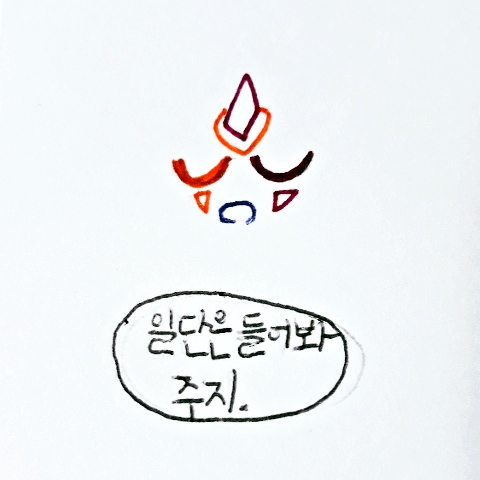 일단은 들어봐
주지.